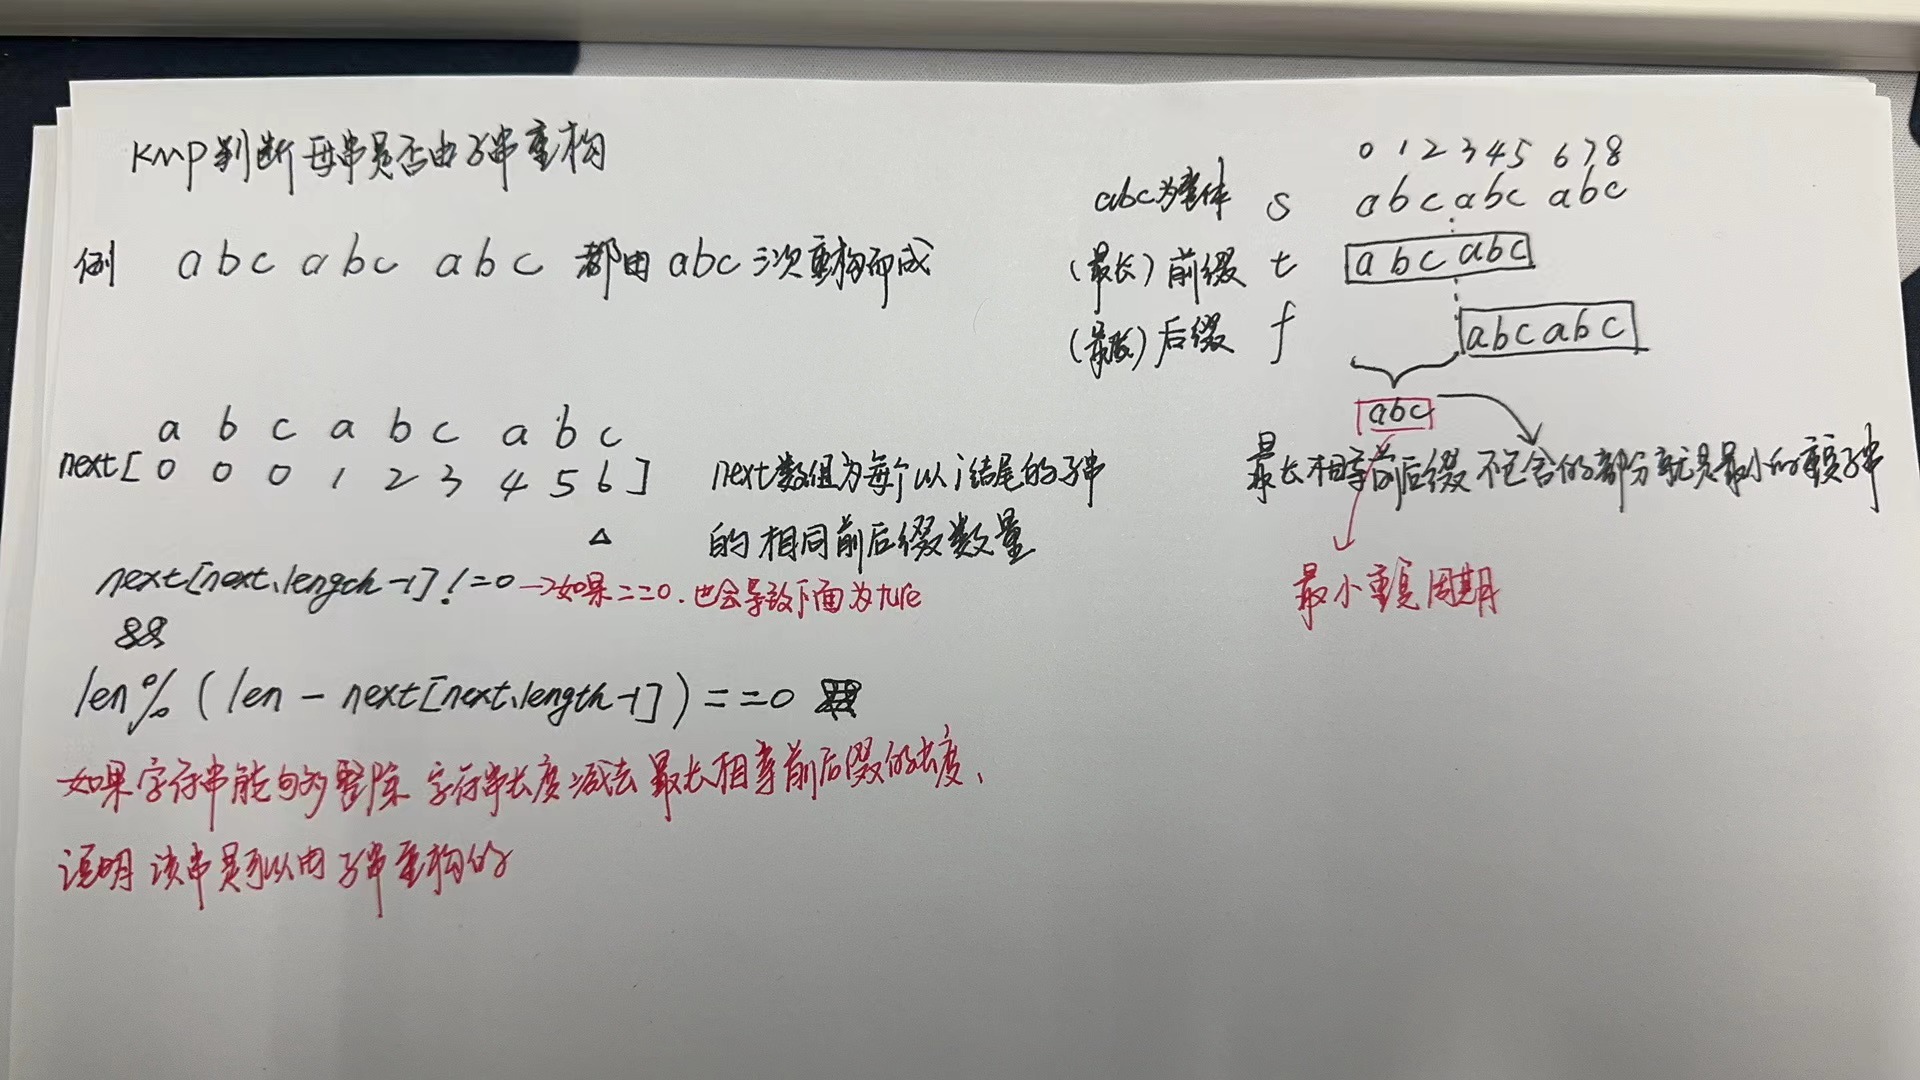 KMP判断母串是否由子串重构
例 abc abc abc 都由abc三次重构而成
a b c a b c a b c
next[ 0 0 0 1 2 3 4 5 6 ]
next数组为每个以i结尾的子串
的相同前后缀数量
△
next[next.length-1]!=0 →如果==0.也会导致下面为ture
&&
len%(len-next[next.length-1])==0
如果字符串能句多整除 字符串长度减去最长相等前后缀的长度、
说明该串是可以由子串重构的
0 1 2 3 4 5 6 7 8
abc为整体 s abc abc abc
(最长)前缀 t abc abc
(最长)后缀 f abc abc
abc
最长相等前后缀不包含的部分就是最小的重复子串
最小重复周期